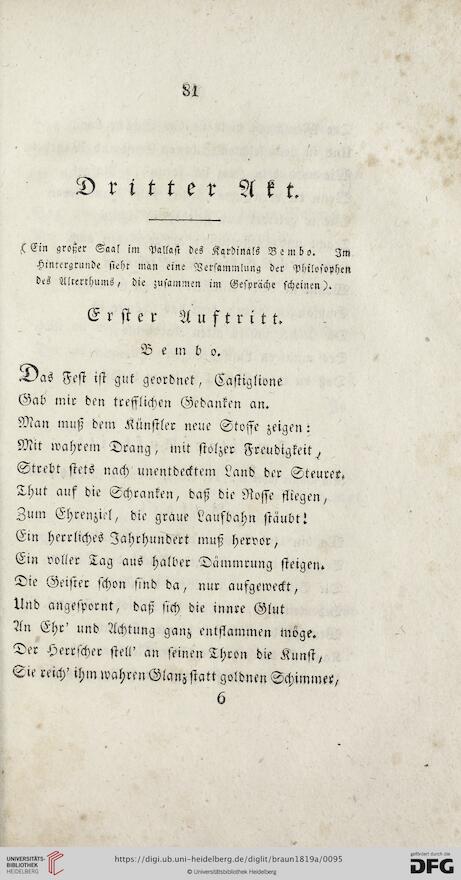 81
Dritter Akt.
(Ein großer Saal im Pallast des Kardinals Bembo. Im
Hintergrunde sieht man eine Versammlung der Philosophen
des Alterthums, die zusammen im Gespräche scheinen).
Erster Auftritt.
Bembo.
Das Fest ist gut geordnet, Castiglione
Gab mir den trefflichen Gedanken an.
Man muß dem Künstler neue Stoffe zeigen:
Mit wahrem Drang, mit stolzer Freudigkeit,
Strebt stets nach unentdecktem Land der Steurer.
Thut auf die Schranken, daß die Rosse fliegen,
Zum Ehrenziel, die graue Laufbahn stäubt!
Ein herrliches Jahrhundert muß hervor,
Ein voller Tag aus halber Dämmrung steigen.
Die Geister schon sind da, nur aufgeweckt,
Und angespornt, daß sich die innre Glut
An Ehr' und Achtung ganz entflammen möge.
Der Herrscher stell' an seinen Thron die Kunst,
Sie reich' ihm wahren Glanz statt goldnen Schimmer,
6
UNIVERSITÄTS-
BIBLIOTHEK
HEIDELBERG
https://digi.ub.uni-heidelberg.de/diglit/braun1819a/0095
© Universitätsbibliothek Heidelberg
gefördert durch die
DFG